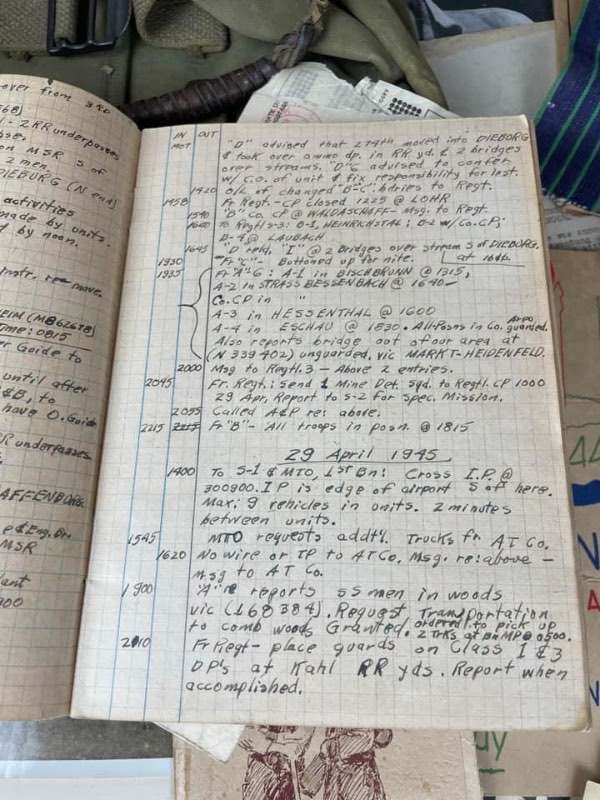 over from 3rd
68)
2 RR underpasses
on MSR S of
2 men
DIEBURG (N end)
activities
made by units.
d by noon.
Instr. re move.
HEIM (M862678)
Time: 0815
er Guide to
until after
&B, to
have O. Guide
RR underpasses
AFFENBURG
MSR
900
IN OUT
"D" advised that 274th moved into DIEBURG
& took over ammo dp. in RR yd. & 2 bridges
over streams. "D"G advised to confer
w/ Co. of unit & fix responsibility for last.
1420 o/c of changed "B"-"C" bdries to Regt.
1458 Fr Regt.- CP closed 1225 @ LOHR
1540 "B" Co. CP @ WALDASCHAFF - Msg. to Regt.
1600 To Regtl S-3: B-1, HEINRICHSTAL; B-2 w/ Co. CP;
B-4 @ LAUBACH
1645 "D" rely. "I" @ 2 Bridges over stream S of DIEBURG.
1930 Fr "C" - Buttoned up for nite. at 1600
1935 Fr "A"G: A-1 in BISCHBRUNN @ 1315,
A-2 in STRASS BESSENBACH @ 1640-
Co. CP in "
A-3 in HESSENTHAL @ 1600
A-4 in ESCHAU @ 1830. All Posns in Co. Area guarded.
Also reports bridge out of our area at
(N 339402) unguarded, vic MARKT-HEIDENFELD.
2000 Msg to Regtl. 3 - Above 2 entries.
2045 Fr. Regt.: Send 1 Mine Det. Sqd. to Regtl. CP 1000
29 Apr. Report to S-2 for Spec. Mission.
2055 Called A&P re: above.
2215 2215 Fr "B" - All troops in posn. @ 1815
29 April 1945
1400 To S-1 & MTO, 1st Bn: Cross I.P. @
300900. I P is edge of airport S of here.
Max: 9 vehicles in units. 2 minutes
between units.
1545 MTO requests addtl. Trucks fr AT Co.
1620 No wire or TP to AT Co. Msg. re: above -
Msg to AT Co.
1900 "A" reports SS men in woods
vic (168384). Request Transportation
to comb woods Granted. ordered to pick up
2 Trks at Bn MP @ 0500.
2010 Fr Regt - place guards on Class I & 3
DP's at Kahl RR yds. Report when
accomplished.